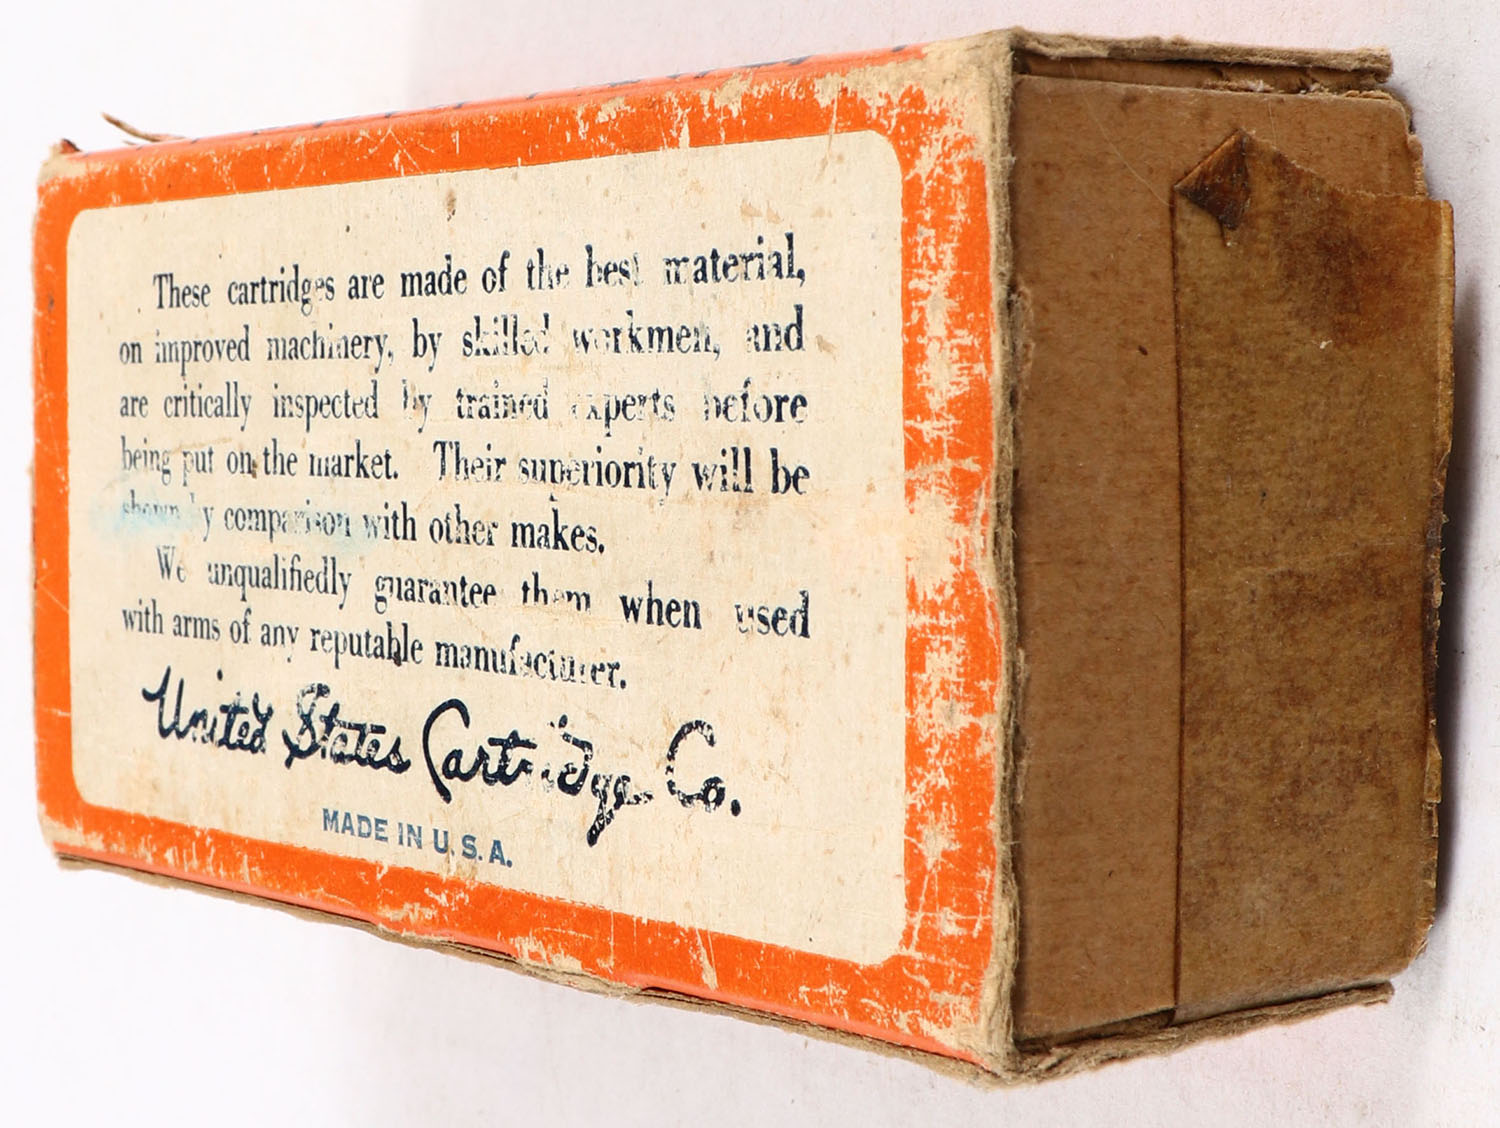 These cartridges are made of the best material,
on improved machinery, by skilled workmen, and
are critically inspected by trained experts before
being put on the market. Their superiority will be
shown by comparison with other makes.
We unqualifiedly guarantee them when used
with arms of any reputable manufacturer.
United States Cartridge Co.
MADE IN U.S.A.